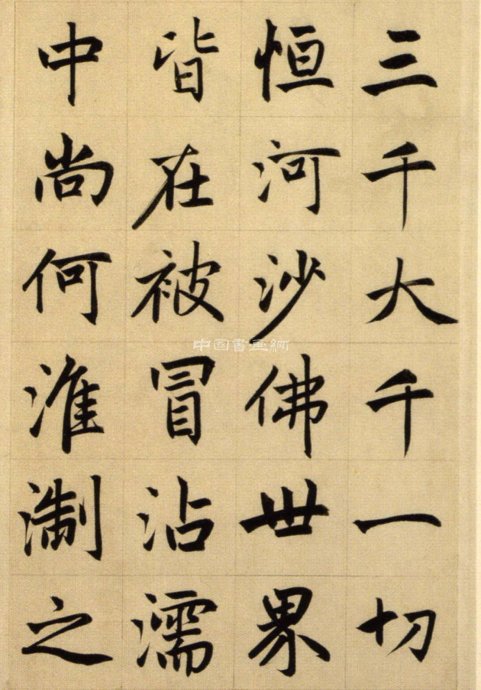 三千大千一切
恒河沙佛世界
皆在被冒沾濡
中尚何淮淛之
中国书画网